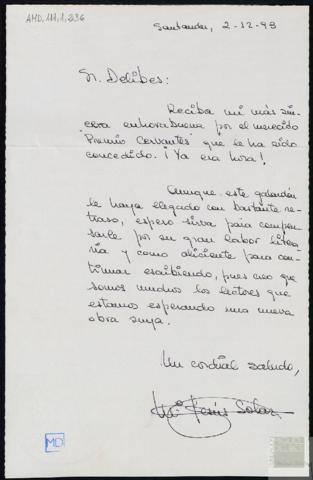 AMD,111,1,236
Santander, 2-12-93
Sr. Delibes:
Reciba mi más sin-
cera enhorabuena por el merecido
"Premio Cervantes" que le ha sido
concedido. ¡Ya era hora!
Aunque este galardón
le haya llegado con bastante re-
traso, espero sirva para compen-
sarle por su gran labor litera-
ria y como aliciente para con-
tinuar escribiendo, pues creo que
somos muchos los lectores que
estamos esperando una nueva
obra suya.
Un cordial saludo,
Mª Jesús Solar
MD